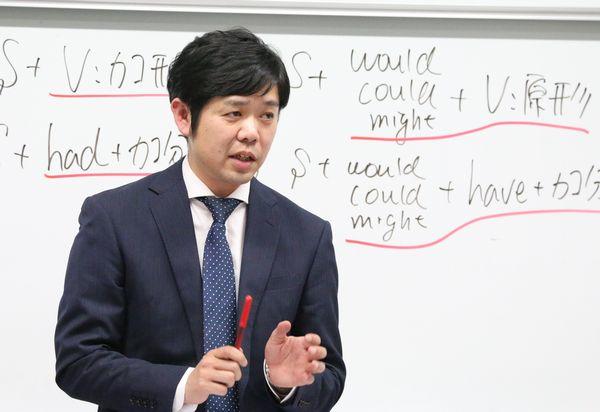 S+ V:カコ形
S+ would
could + V:原形
might
S+ had+カコ分
S+ would
could + have+カコ分
might